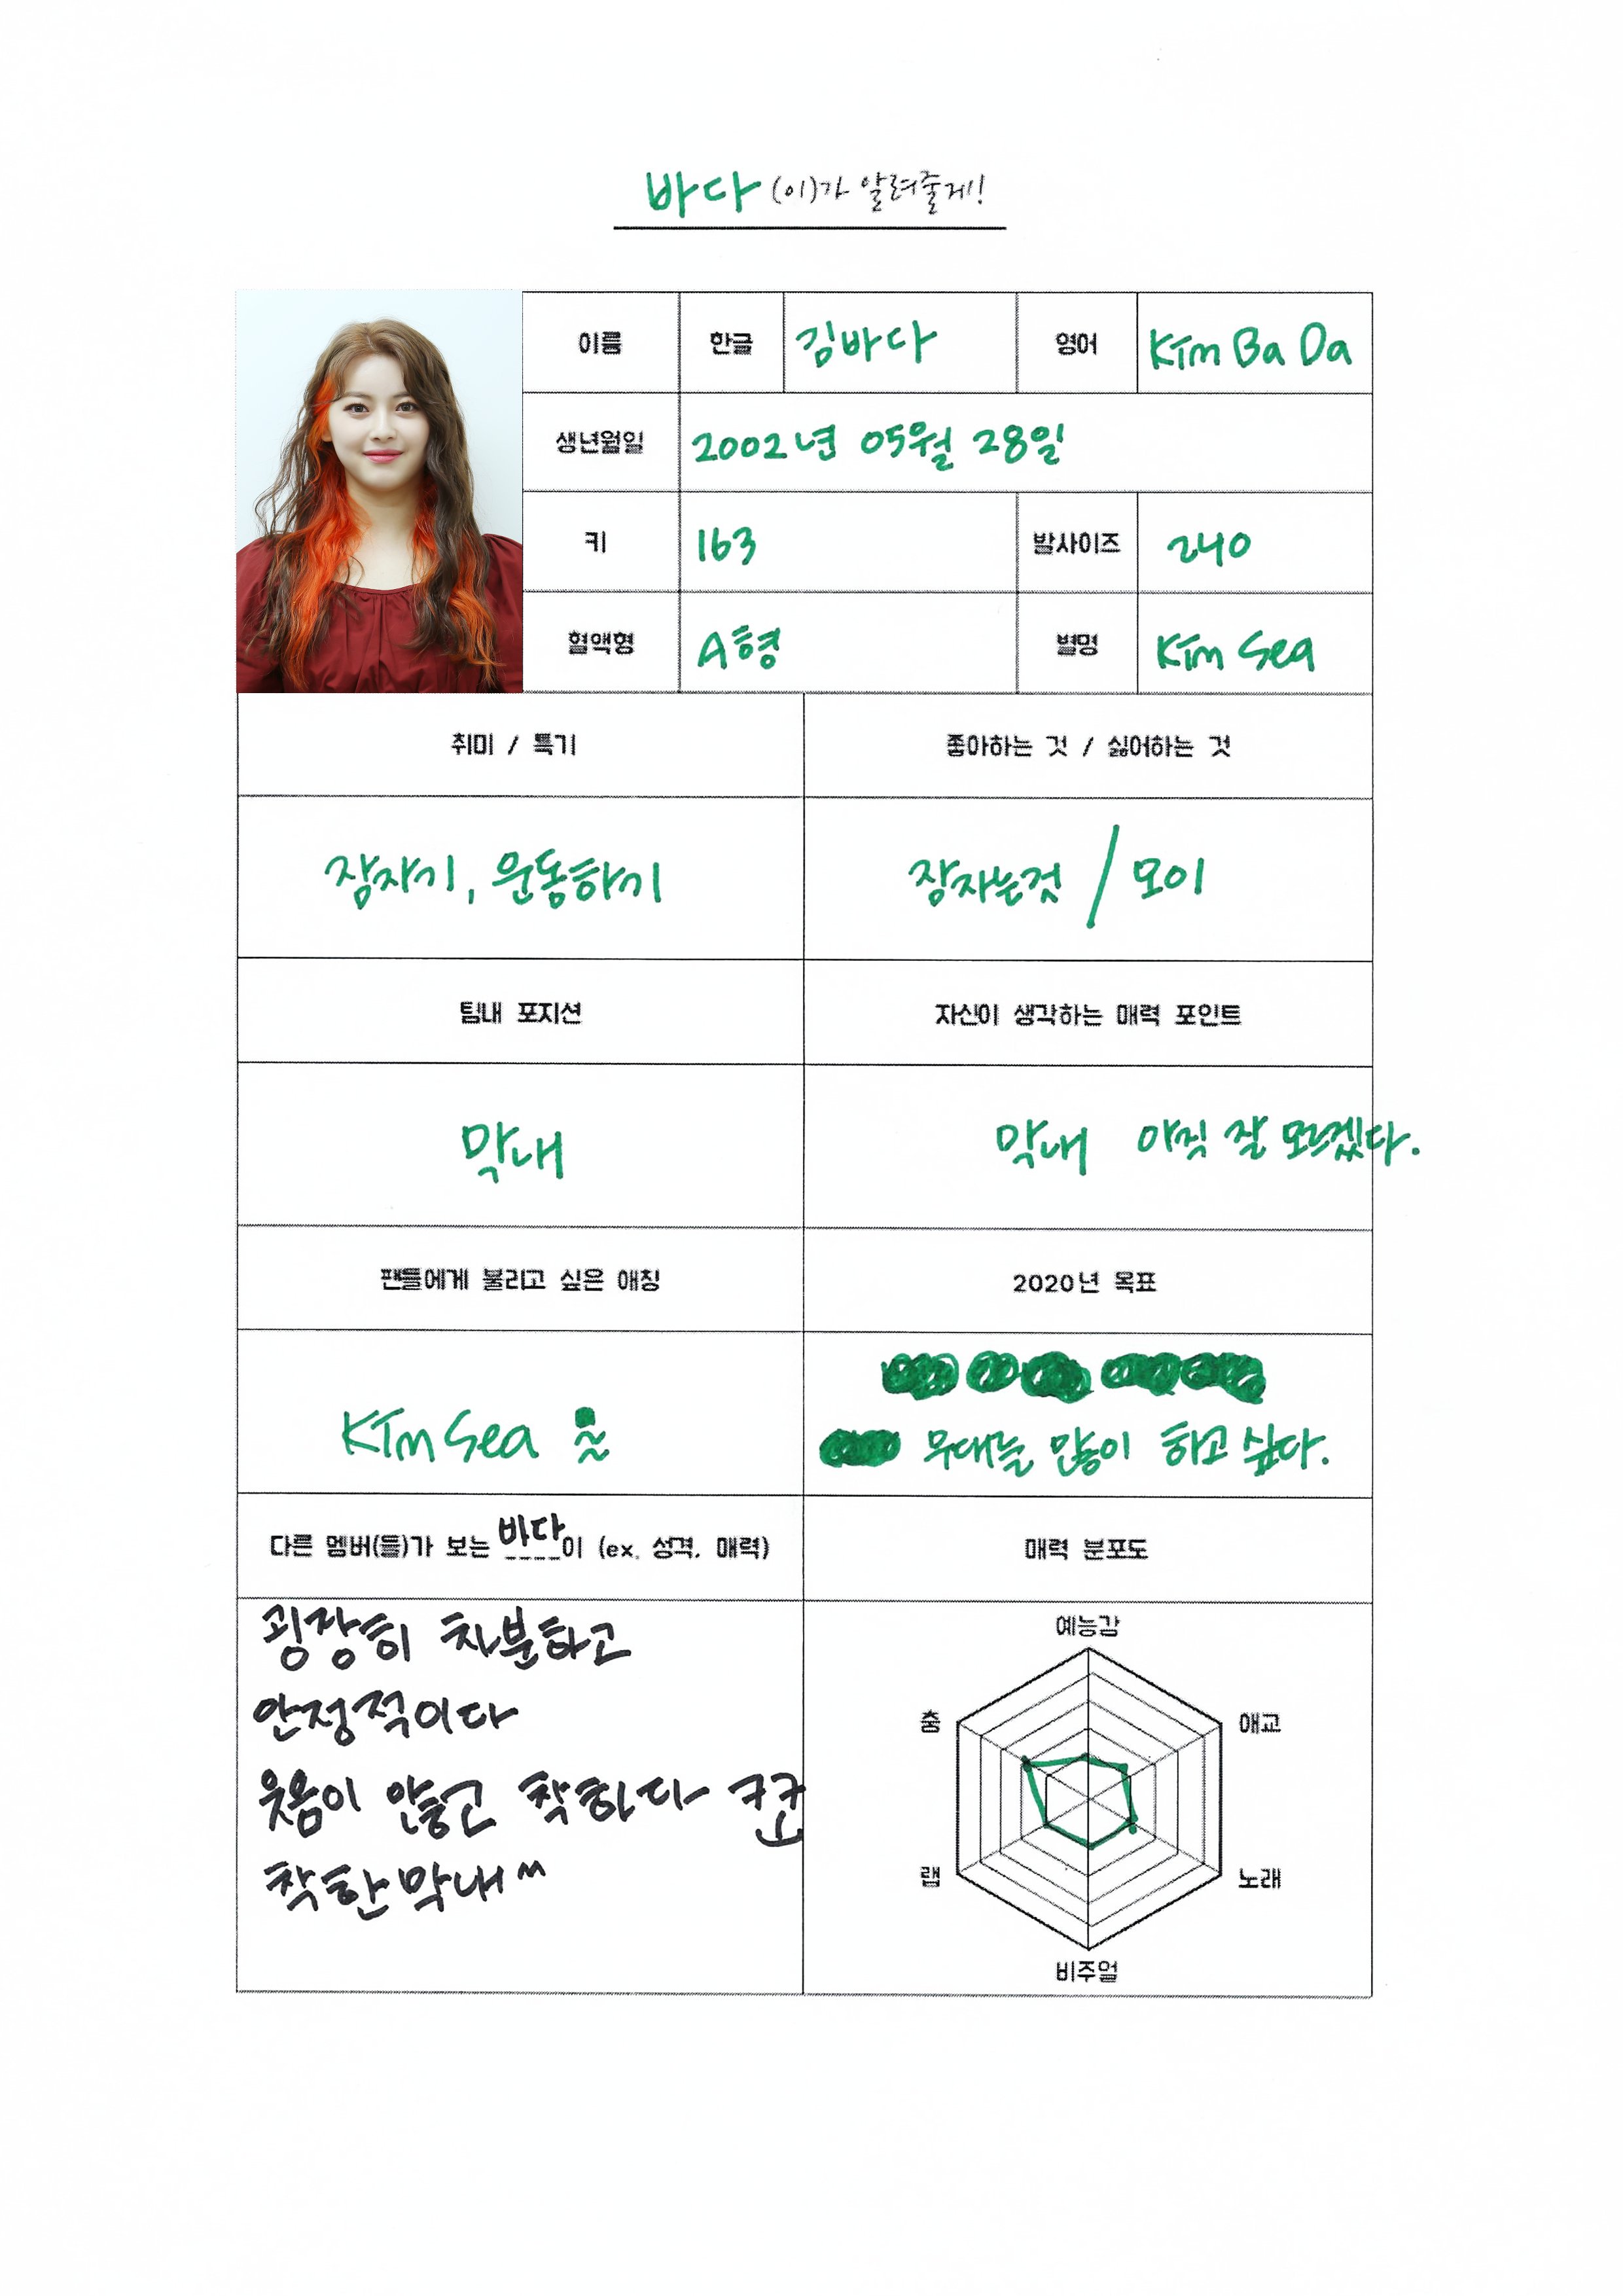 바다(이)가 알려줄게!
이름 한글 김바다 영어 Kim Ba Da
생년월일 2002년 05월 28일
키 163 발사이즈 240
혈액형 A형 별명 Kim Sea
취미 / 특기 좋아하는 것 / 싫어하는 것
잠자기, 운동하기 잠자는것 / 오이
팀내 포지션 자신이 생각하는 매력 포인트
막내 막내 아직 잘 모르겠다.
팬들에게 불리고 싶은 애칭 2020년 목표
Kim Sea 무대를 많이 하고 싶다.
다른 멤버(들)가 보는 바다이 (ex. 성격, 매력) 매력 분포도
굉장히 차분하고
안정적이다
웃음이 많고 착하다
착한막내
예능감
춤 애교
랩 노래
비주얼